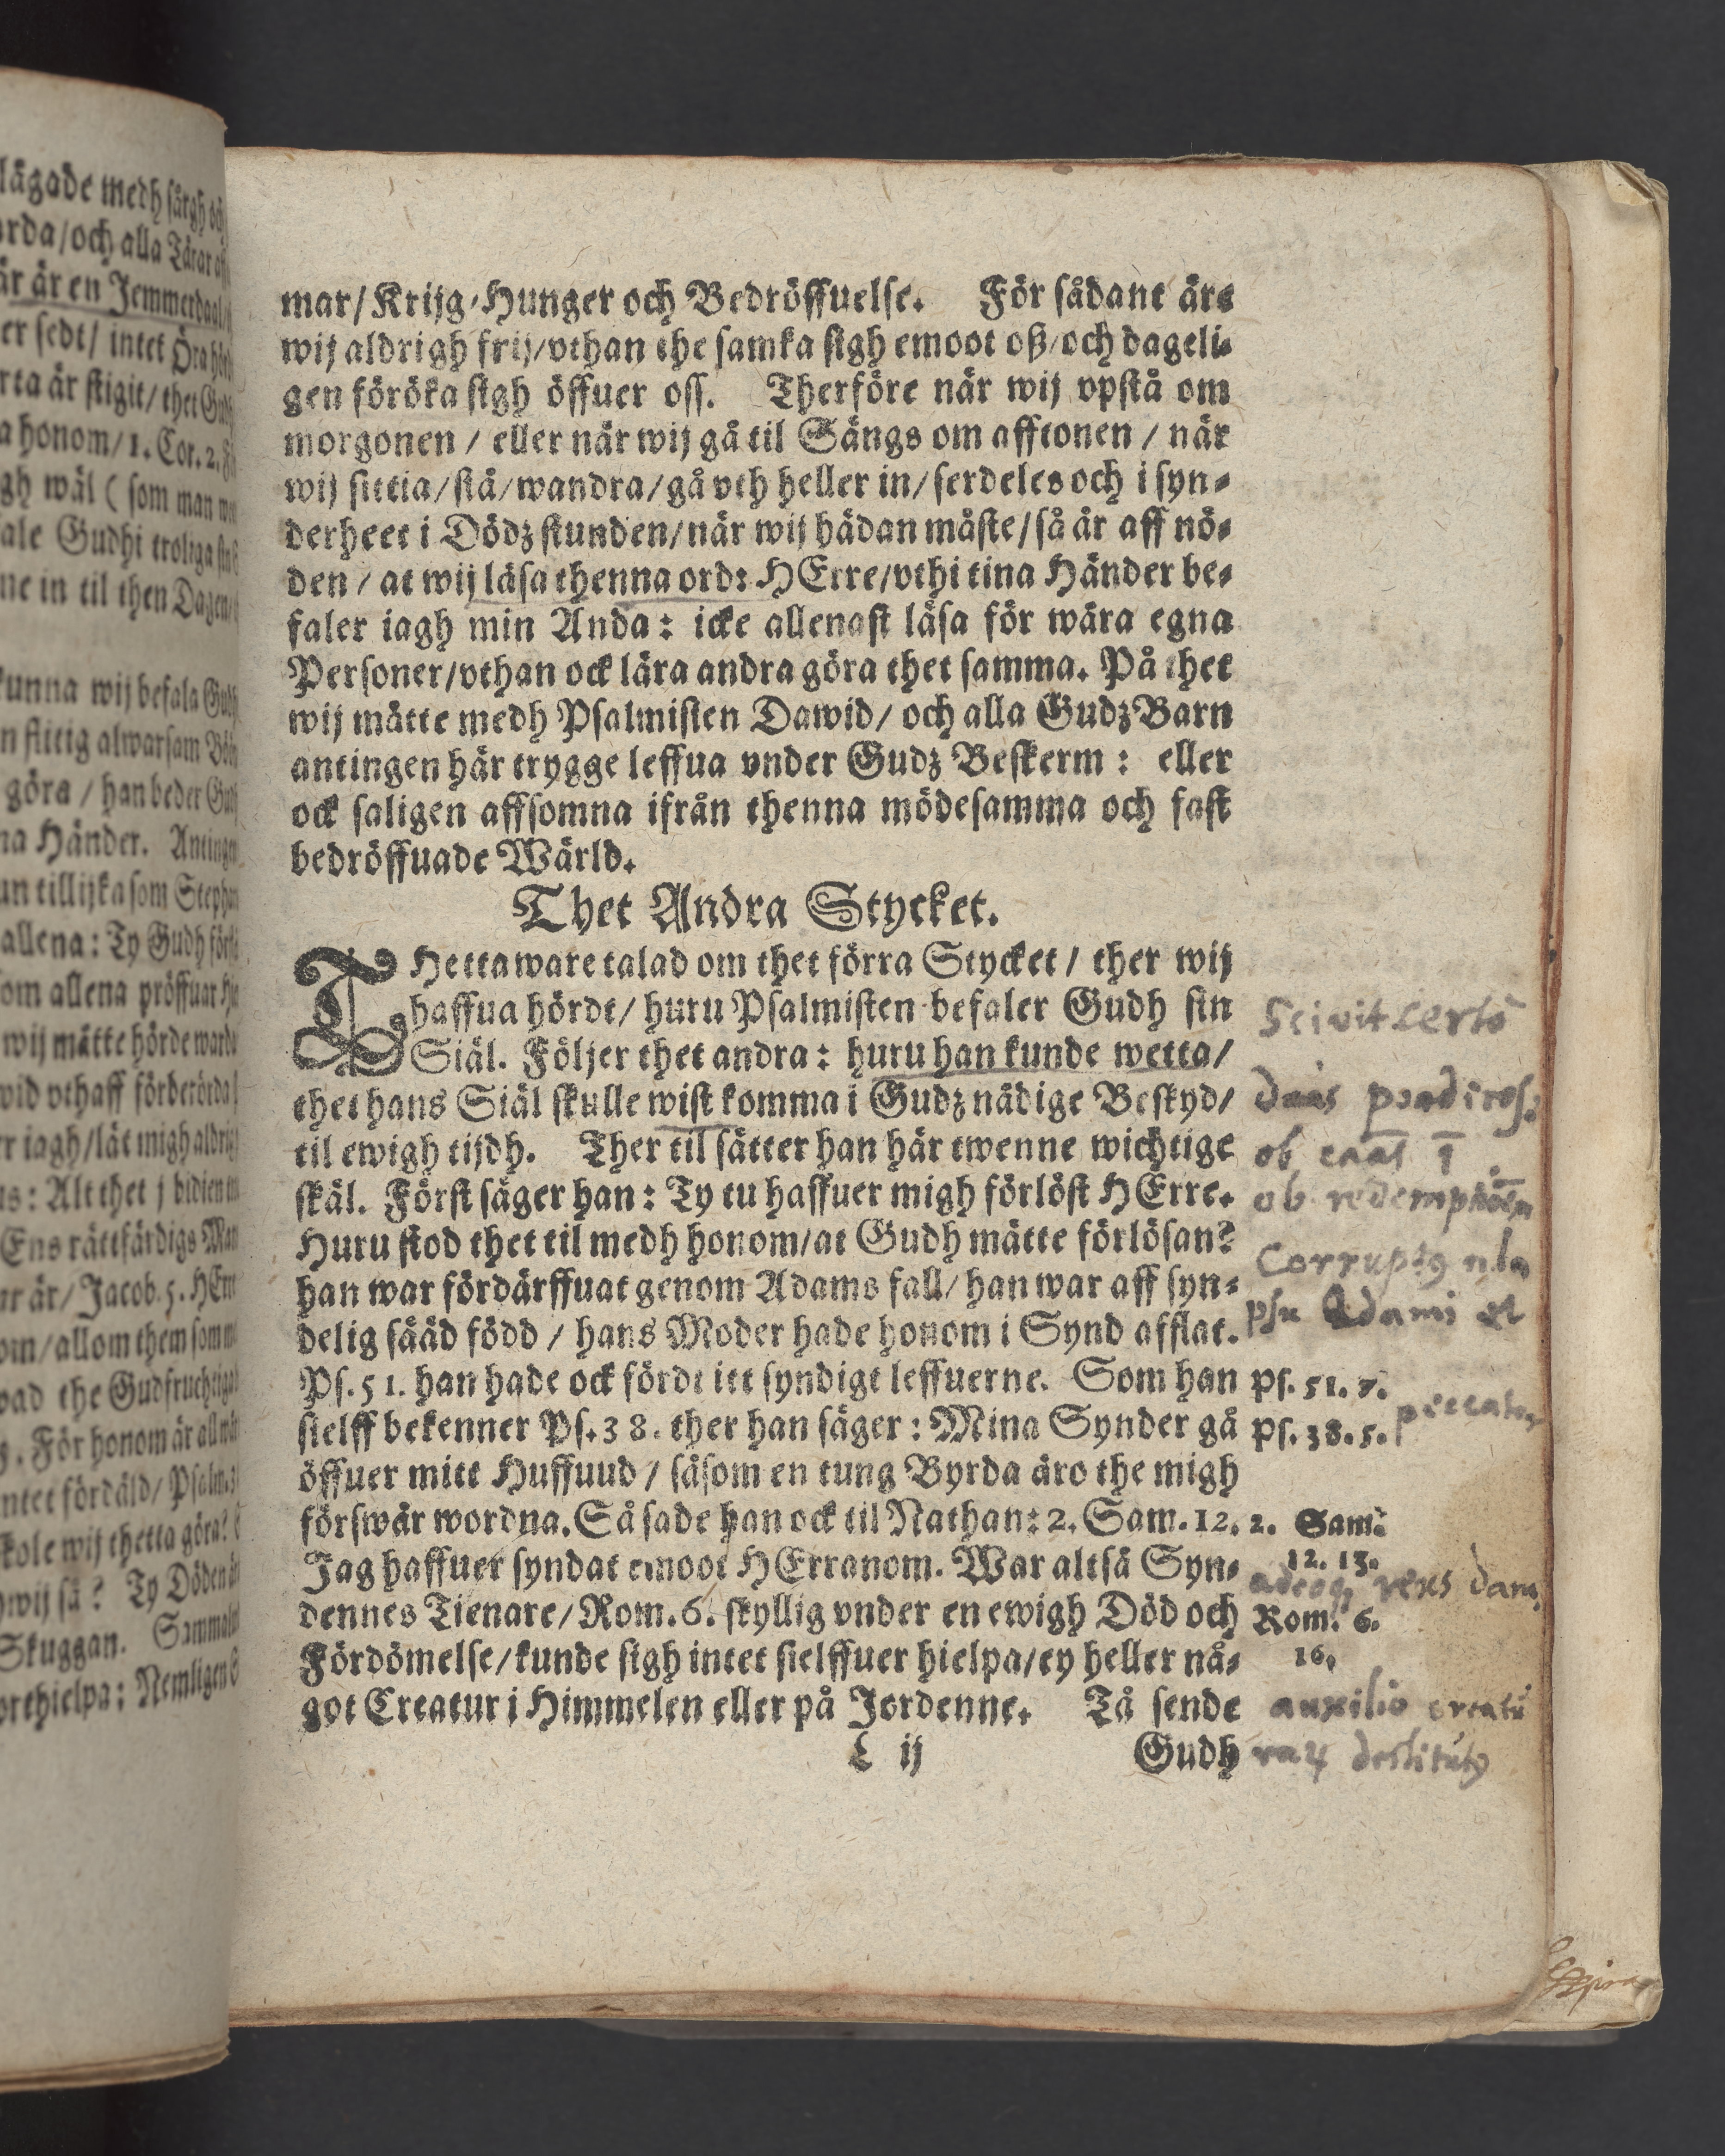 mar/ Krijg/ Hunger och Bedröffuelse. För sådant äre
wij aldrigh frij/ vthan the samka sigh emoot oß/ och dageli-
gen föröka sigh öffuer oss. Therföre när wij vpstå om
morgonen / eller när wij gå til Sängs om afftonen / när
wij sittia/ stå/ wandra/ gå vth heller in/ serdeles och i syn-
derheet i Dödz stunden/ när wij hädan måste/ så är aff nö-
den / at wij läsa thenna ord: HErre/ vthi tina Händer be-
faler iagh min Anda: icke allenast läsa för wåra egna
Personer/ vthan ock lära andra göra thet samma. På thet
wij mätte medh Psalmisten Dawid/ och alla Gudz Barn
antingen här trygge leffua vnder Gudz Beskerm: eller
ock saligen affsomna ifrån thenna mödesamma och fast
bedröffuade Wärld.
Thet Andra Stycket.
THetta ware talad om thet förra Stycket / ther wij
haffua hördt/ huru Psalmisten befaler Gudh sin
Siäl. Följer thet andra: huru han kunde wetta/
thet hans Siäl skulle wist komma i Gudz nädige Beskyd/
til ewigh tijdh. Ther til sätter han här twenne wichtige
skäl. Först säger han: Ty tu haffuer migh förlöst HErre.
Huru stod thet til medh honom/ at Gudh mätte förlösan?
han war fördärffuat genom Adams fall/ han war aff syn-
delig sääd född / hans Moder hade honom i Synd afflat.
Ps. 51. han hade ock fördt itt syndigt leffuerne. Som han
sielff bekenner Ps. 38. ther han säger: Mina Synder gå
öffuer mitt Huffuud / såsom en tung Byrda äro the migh
förswår wordna. Så sade han ock til Nathan: 2. Sam. 12.
Jag haffuer syndat emoot HErranom. War altså Syn-
dennes Tienare/ Rom. 6. skyllig vnder en ewigh Död och
Fördömelse/ kunde sigh intet sielffuer hielpa/ ey heller nå-
got Creatur i Himmelen eller på Jordenne. Tå sende
L ij Gudh
Scivit certo
ob
ob redemptõem
Adami et
ps. 51. 7.
ps. 38. 5.
2. Sam.
12. 13.
Rom. 6.
16.
auxilio creatu
lägade medh sårgh
rda/ och alla Tårar
är är en Jemmerdaal/
er sedt/ intet Öra
rta är stigit/ thet
a honom/ 1. Cor. 2.
gh wäl ( som man
ale Gudhi troliga
ne in til then Dagen/
kunna wij befala
n flitig alwarsam
göra / han beder
na Händer.
un tillijka som
allena: Ty Gudh
om allena pröffuar
wij mätte hörde
wid vthaff
r iagh/ lät migh
us: Alt thet
Ens rättfärdigs
ar är/ Jacob. 5.
om/ allom them som
oad the
. För honom är
ntet fördäld/
skole wij thetta göra?
wij så? Ty Döden
Skuggan.
orthielpa: Nemligen